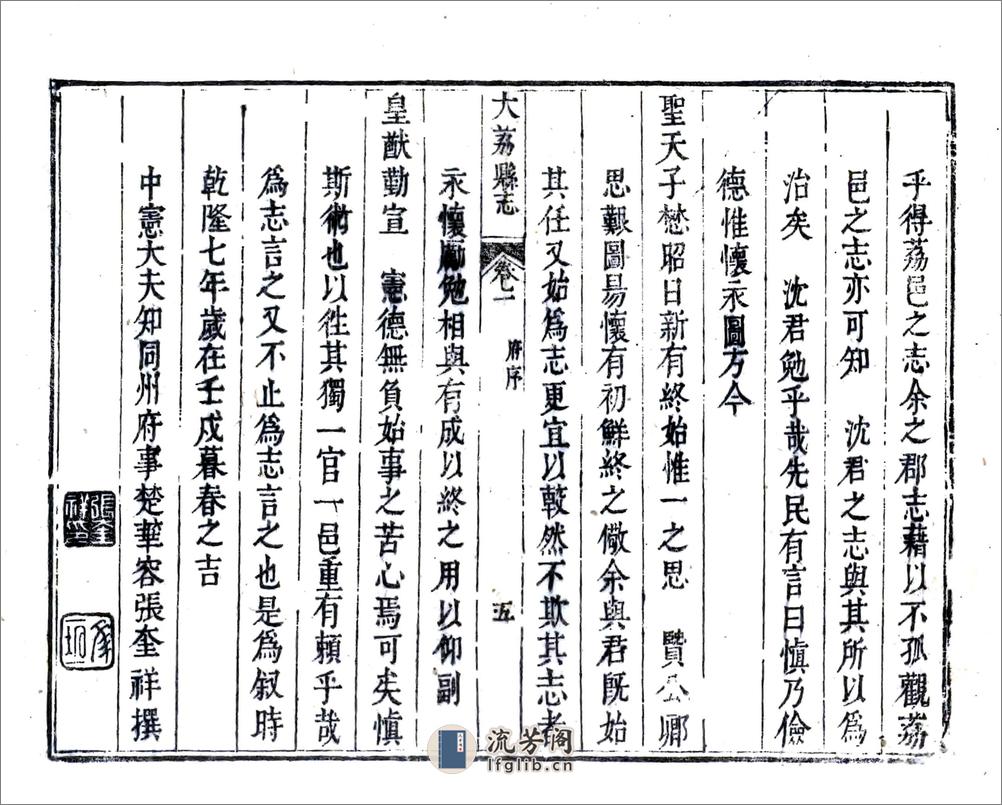 乎得荔邑之志余之郡志藉以不孤觀荔
邑之志亦可知　沈君之志與其所以為
治矣　沈君勉乎哉先民有言曰慎乃儉
德惟懷永圖方今
聖天子懋昭日新有終始惟一之思　賢公卿
思艱圖易懷有初鮮終之儆余與君既始
其任又始為志更宜以毅然不欺其志者
大荔縣志
卷一
府序
五
永懷勵勉相與有成以終之用以仰副
皇猷勤宣　憲德無負始事之苦心焉可矣慎
斯術也以徃其獨一官一邑重有頼乎哉
為志言之又不止為志言之也是為叙時
乾隆七年歲在壬戌暮春之吉
中憲大夫知同州府事楚華容張奎祥撰
張奎祥印
流芳阁
lfglib.cn